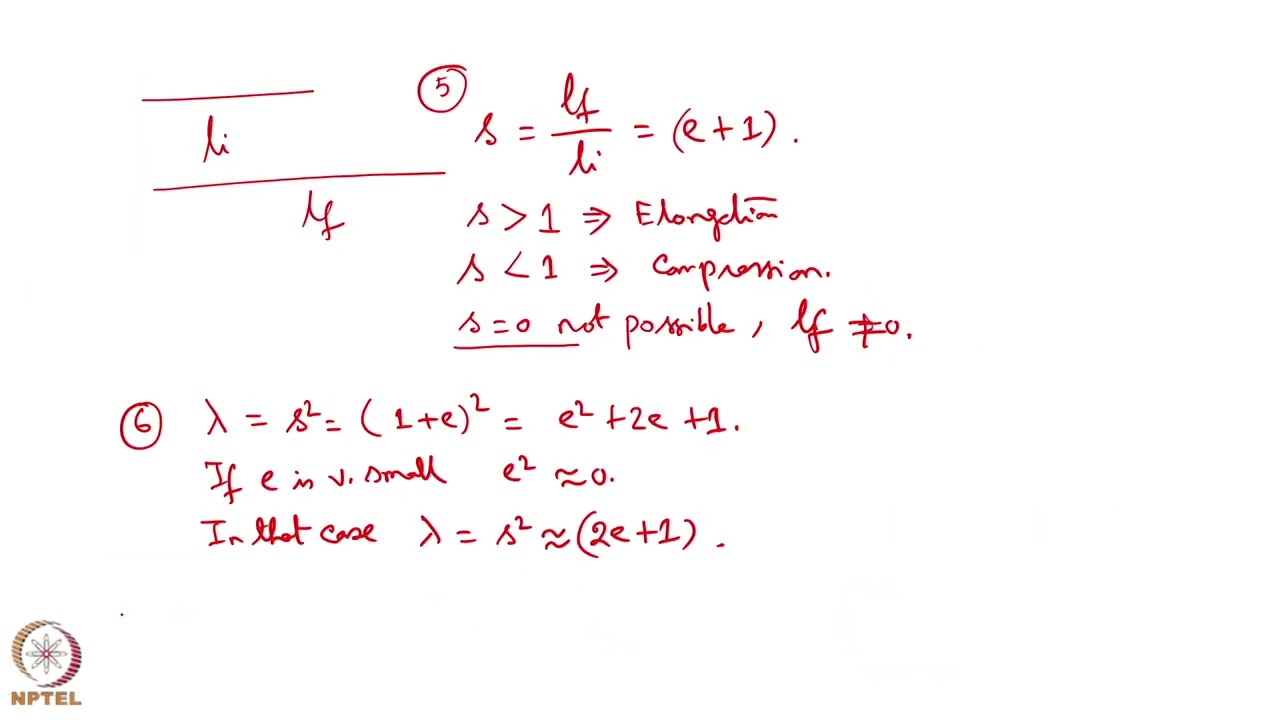 li
lf
⑤ s = lf/li = (e+1).
s > 1 ⇒ Elongation
s < 1 ⇒ Compression.
s=0 not possible, lf ≠0.
⑥ λ = s² = (1+e)² = e² +2e +1.
If e is v. small e² ≈0.
In that case λ = s² ≈(2e+1).
NPTEL